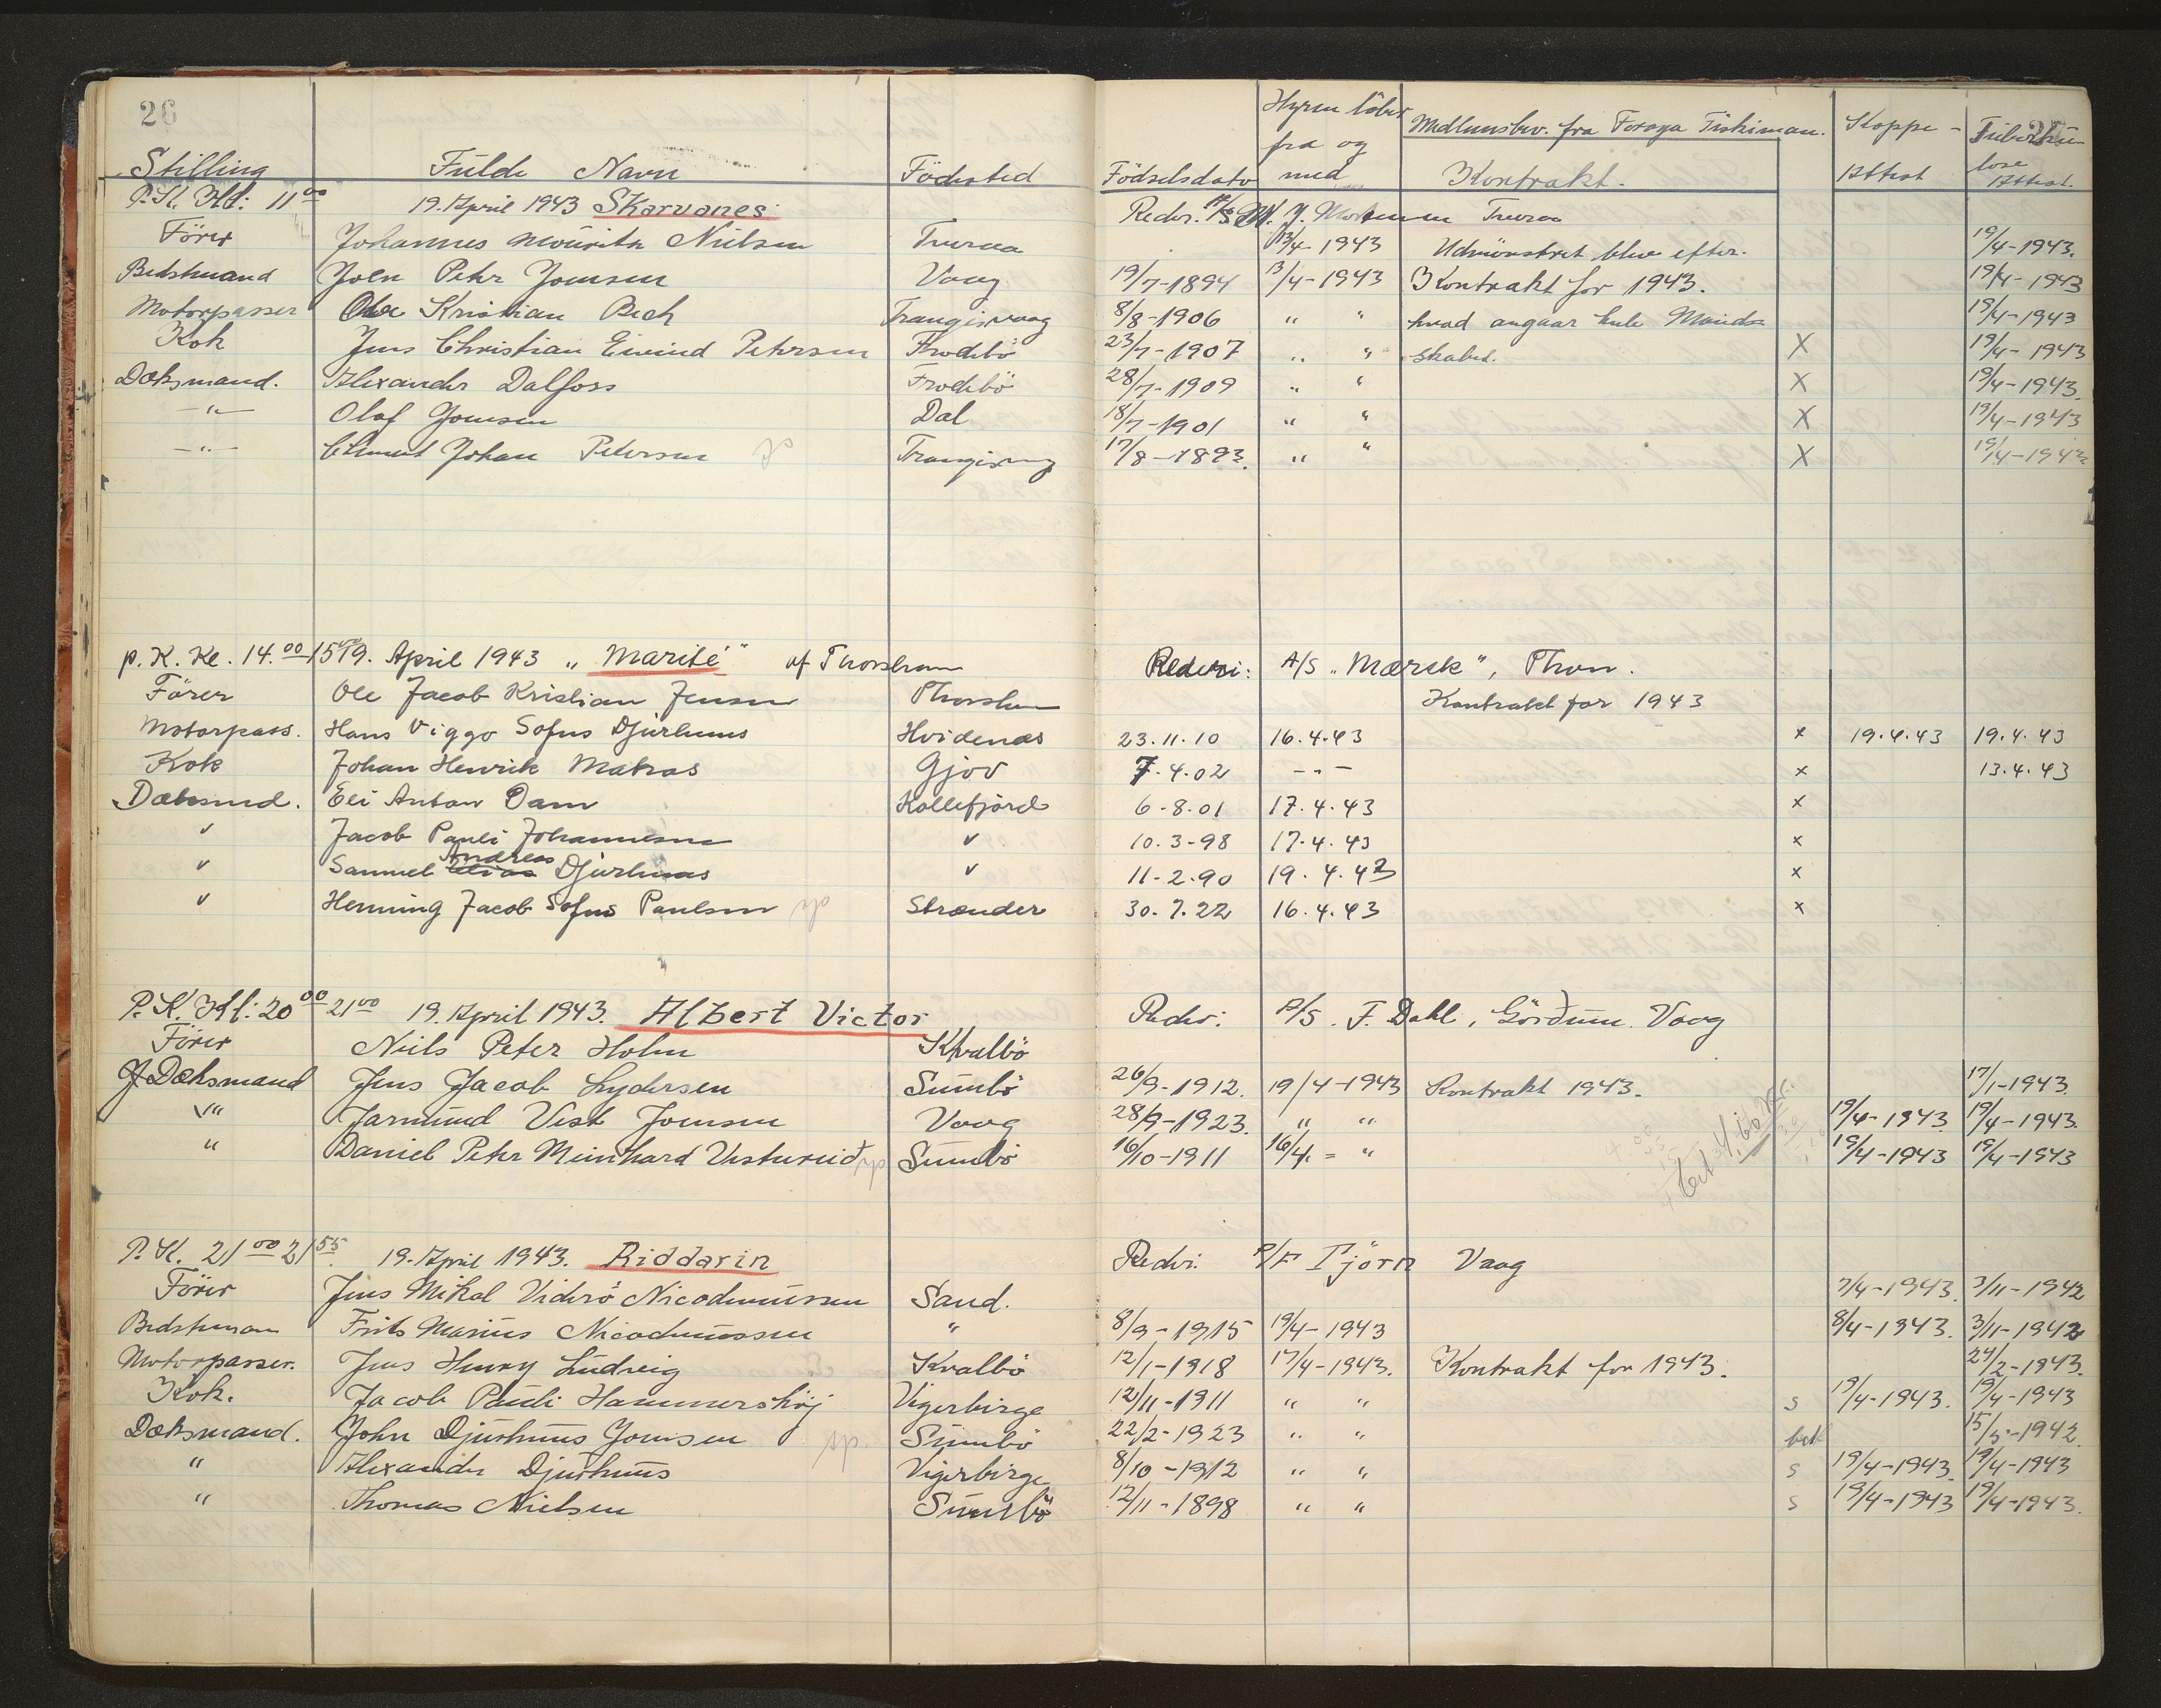 26
Stilling Fulde Navn Födested Födselsdato Hyren löber fra og med Medlemsbev. fra Foroya Fiskiman. Kontrakt. Koppe-Attest Tuberkulose Attest.
P.K. Kl: 11 00 19. April 1943 Skarvanes Reder. A/S J. Mortensen Tveraa
Förer Johannes Mouritz Nielsen Tveraa 13/4-1943 Udmönstret blev efter. 19/4-1943.
Bedstmand Joen Peter Joensen Vaag 19/7-1894 13/4-1943 Kontrakt for 1943. 19/4-1943
Motorpasser Kristian Bech Trangisvaag 8/8-1906 " " hvad angaar hele Mands- 19/4-1943
Kok Jens Christian Eivind Petersen Frodebö 23/7-1907 " " skabet. X 19/4-1943
Dæksmand. Alexander Dalfoss Frodebö 28/7-1909 " " X 19/4-1943.
-"- Olaf Joensen Dal 18/7-1901 " " X 19/4-1943
-"- Clement Johan Petersen Trangisvaag 17/8-1893. " " X 19/4-1943
p. K. Kl. 14.00-15 00 19. April 1943 "Marité" af Thorshavn Rederi: A/S "Mærsk", Thvn.
Förer Ole Jacob Kristian Jensen Thorshavn Kontrakt for 1943
Motorpass. Hans Viggo Sofus Djurhuus Hvidenæs 23.11.10 16.4.43 x 19.4.43 19.4.43
Kok Johan Henrik Matras Gjov 7.4.02 -"- x 13.4.43
Dæksmd. Eli Anton Dam Kollefjord 6-8.01 17.4.43 x
" Jacob Pauli Johannesen " 10.3-98 17.4.43 x
" Samuel Elias Andreas Djurhuus " 11-2.90 19.4.43 x
" Henning Jacob Sofus Paulsen Strænder 30.7.22 16.4.43 x
P. K. Kl: 20 00 - 21 00 19. April 1943. Albert Victor Reder: P/S. F. Dahl, Görðum. Vaag
Förer Niels Peter Holm Kvalbö
Dæksmand Jens Jacob Lydersen Sumbö 26/9-1912. 19/4-1943 Kontrakt 1943. 17/1-1943.
" Jarmund Vest Joensen Vaag 28/9-1923. " " 19/4-1943 19/4-1943.
" Daniel Peter Meinhard Vestureið Sumbö 16/10-1911 16/4. = " 19/4-1943 19/4-1943
P. K. 21 00 21 55. 19. April 1943. Riddarin Reder: P/F Tjörn Vaag
Förer Jens Mikal Viderö Nicodemussen Sand. 7/4-1943. 3/11-1942
Bedstmann Frits Marius Nicodemussen " 8/9-1915 19/4-1943 8/4-1943. 3/11-1942
Motorpasser. Jens Henry Ludvig Kvalbö 12/1-1918 17/4-1943. Kontrakt for 1943. 24/2-1943.
Kok. Jacob Pauli Hammershöj Vigerbirge 12/11-1911 " " s 19/4-1943. 19/4-1943
Dæksmand. John Djurhuus Joensen sp. Sumbö 22/2-1923 " " bet 15/5-1942.
" Alexander Djurhuus Vigerbirge 8/10-1912 " " s 19/4-1943. 19/4-1943
" Thomas Nielsen Sumbö 12/11-1898 " " s 19/4-1943 19/4-1943.